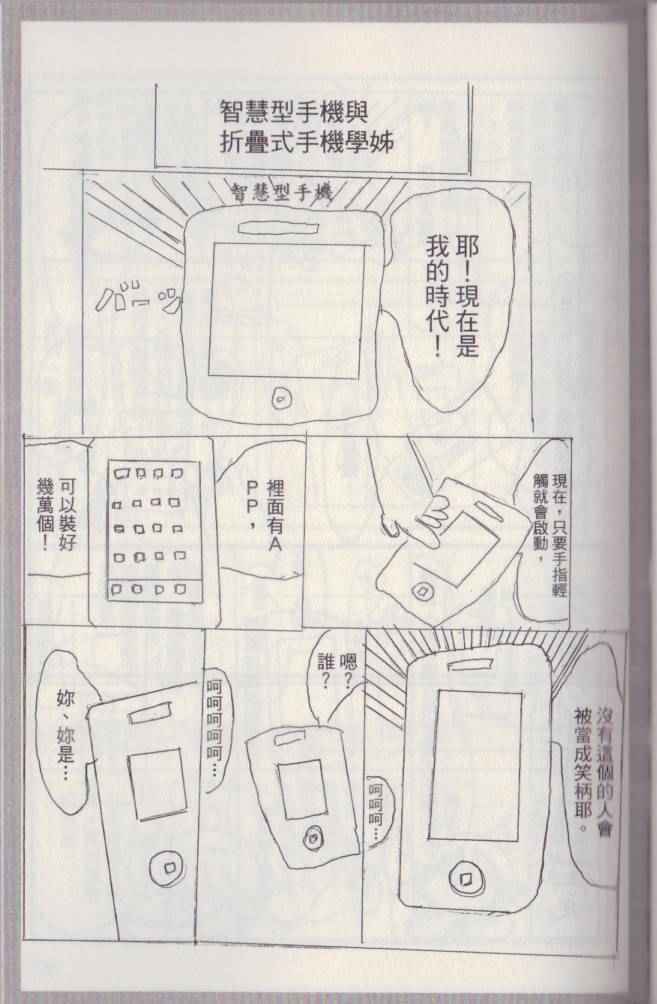 智慧型手機與
折疊式手機學姊
智慧型手機
耶！現在是
我的時代！
バーッ
現在，只要手指輕
觸就會啟動，
裡面有A
PP，
可以裝好
幾萬個！
沒有這個的人會
被當成笑柄耶。
呵呵呵…
嗯？
誰？
呵呵呵呵呵…
妳、妳是…